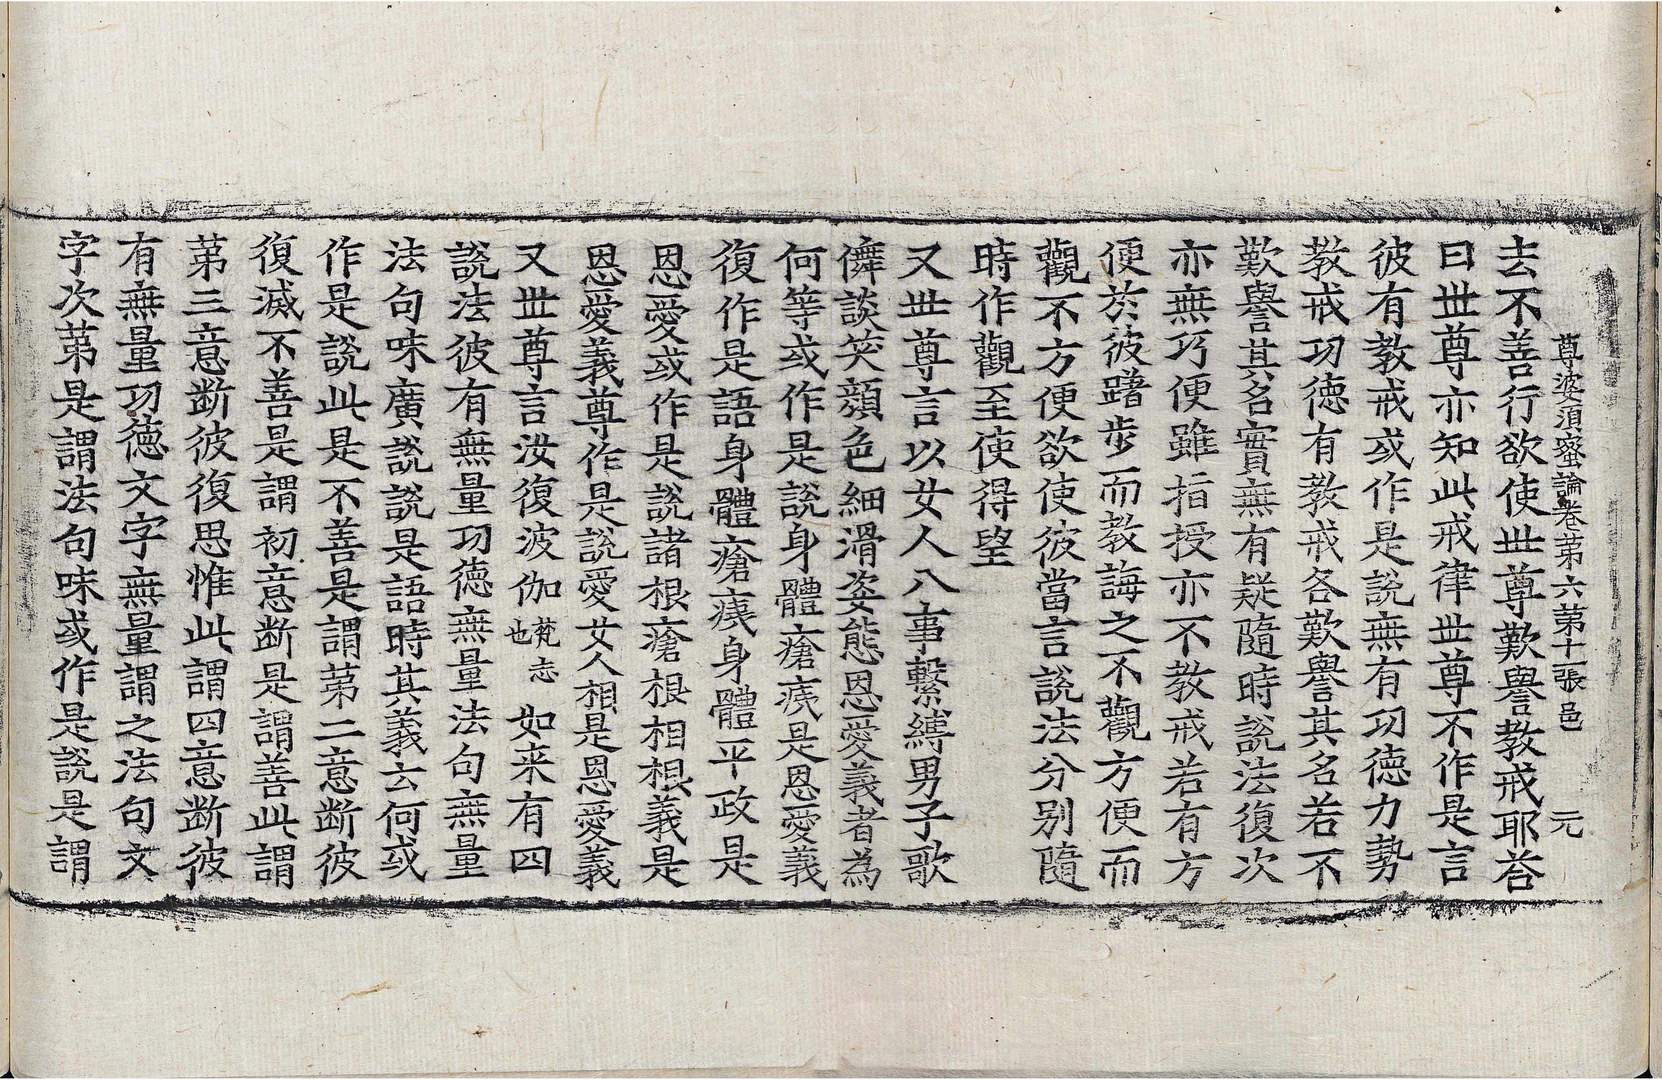 尊婆須蜜論卷第六第十一張邑 元
去不善行欲使世尊歎譽教戒耶荅
曰世尊亦知此戒律世尊不作是言
彼有教戒或作是說無有功德力勢
教戒功德有教戒各歎譽其名若不
歎譽其名實無有疑隨時說法復次
亦無巧便雖指授亦不教戒若有方
便於彼躇步而教誨之不觀方便而
觀不方便欲使彼當言說法分別隨
時作觀至使得望
又世尊言以女人八事繫縛男子歌
儛談笑顏色細滑姿態恩愛義者為
何等或作是說身體瘡痍是恩愛義
復作是語身體瘡痍身體平政是
恩愛或作是說諸根瘡根相根義是
恩愛義尊作是說愛女人相是恩愛義
又世尊言汝復波伽梵志也如来有四
說法彼有無量功德無量法句無量
法句味廣說說是語時其義云何或
作是說此是不善是謂第二意断彼
復滅不善是謂初意断是謂善此謂
第三意断彼復思惟此謂四意断彼
有無量功德文字無量謂之法句文
字次第是謂法句味或作是說是謂